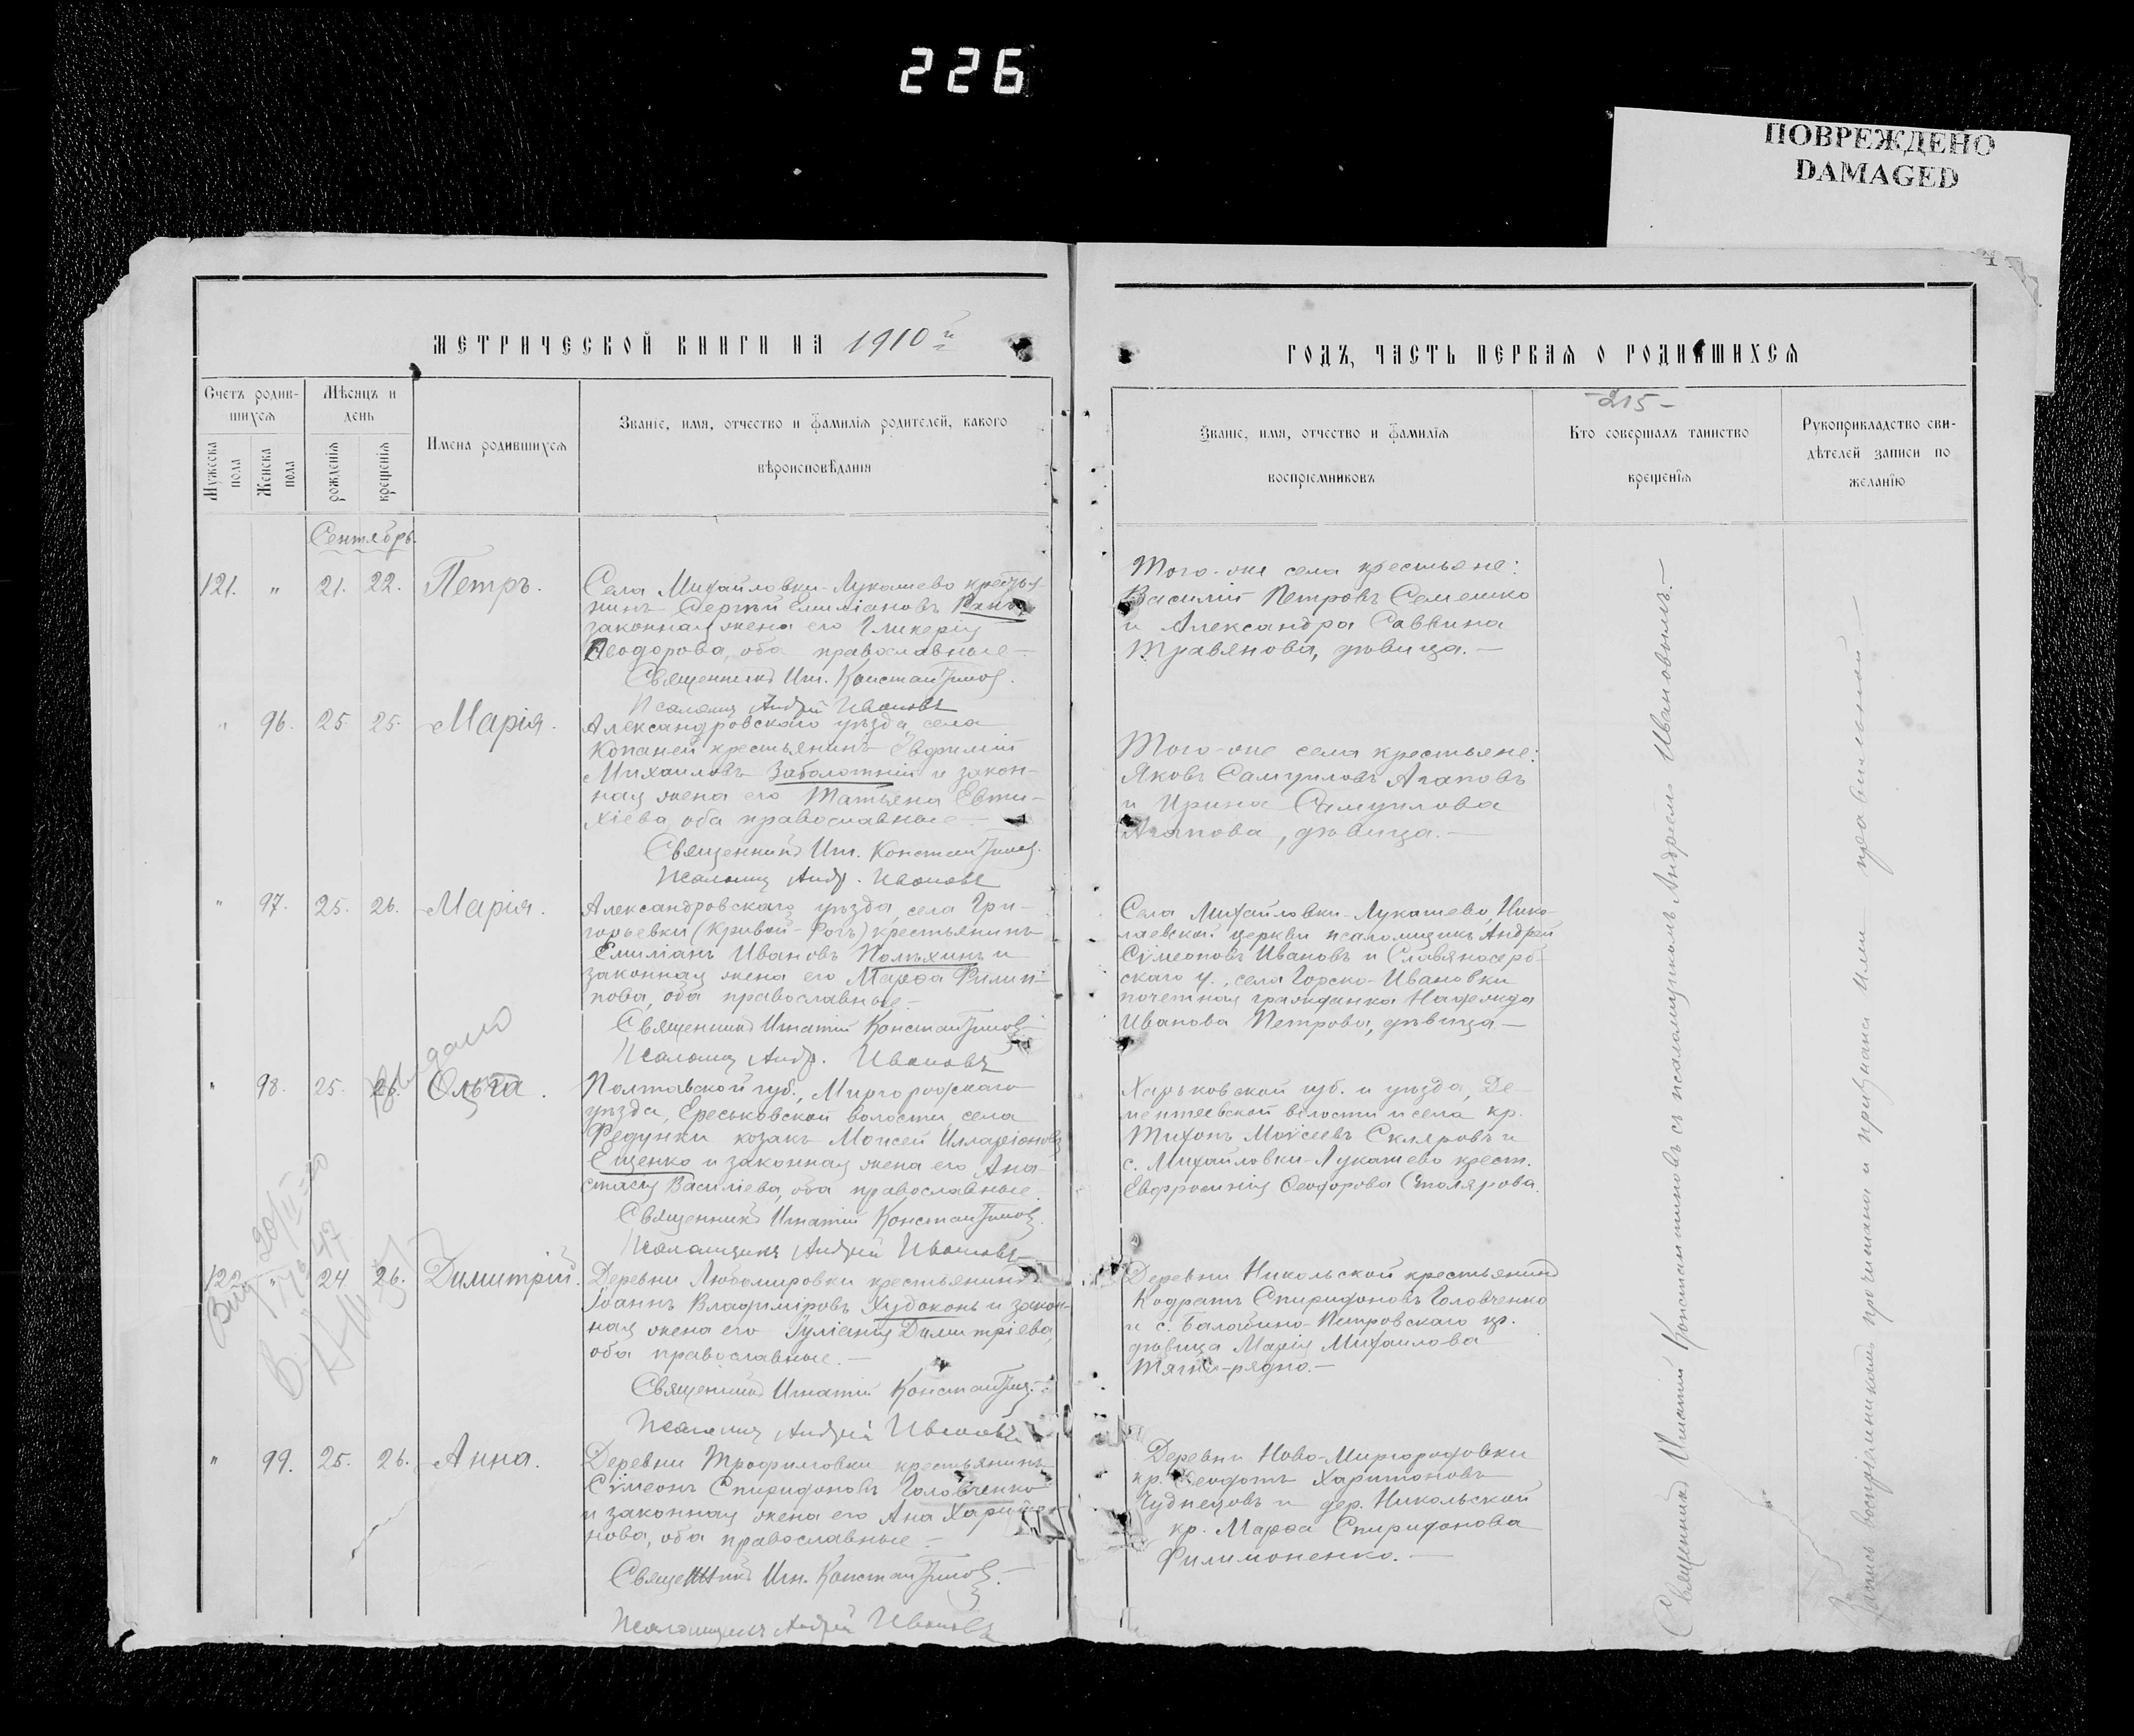 226
ПОВРЕЖДЕНО
DAMAGED
МЕТРИЧЕСКОЙ КНИГИ НА 1910 й
Счетъ родив-
шихся
Мужеска пола
Женска пола
Мѣсяцъ и
день
рожденія
крещенія
Имена родившихся
Званіе, имя, отчество и фамилія родителей, какого
вѣроисповѣданія
Сентябрь.
121. " 21. 22. Петръ.
Села Михайловки-Лукашево крестья-
нинъ Сергѣй Емиліановъ
законная жена его Гликерія
Ѳеодорова, оба православные –
Священникъ Игн. Константинов.
Псаломщ Андрей Ивановъ
" 96. 25 25. Марія.
Александровскаго уѣзда, села
Копаней крестьянинъ Евфимій
Михаиловъ Заболотній и закон-
ная жена его Татьяна Евти-
хіева, оба православные –
Священникъ Игн. Константинов.
Псаломщ Андр. Ивановъ
" 97. 25. 26. Марія.
Александровскаго уѣзда, села Гри-
горьевки (Кривой-Рогъ) крестьянинъ
Емиліанъ Ивановъ Полѣхинъ и
законная жена его Марѳа Филип-
пова, оба православные –
Священникъ Игнатій Константинов
Псаломщ Андр. Ивановъ
Выдано
" 98. 25. 26. Ольга.
Полтавской губ., Миргородскаго
уѣзда, Ереськовской волости, села
Федунки козакъ Моисей Илларіоновъ
Ещенко и законная жена его Ана-
стасія Василіева, оба православные.
Священникъ Игнатій Константинов
Псаломщикъ Андрей Ивановъ
122 " 24 26. Димитрій.
Деревни Любомировки крестьянинъ
Іоаннъ Владиміровъ Худоконь и закон-
ная жена его Іуліанія Димитріева,
оба православные. –
Священникъ Игнатій Константинов.
Псаломщ Андрей Ивановъ
" 99. 25. 26. Анна.
Деревни Трофимовки крестьянинъ
Сѵмеонъ Спиридоновъ Головченко
и законная жена его Ана Харито-
нова, оба православные –
Священникъ Игн. Константинов.
Псаломщикъ Андрей Ивановъ
ГОДЪ, ЧАСТЬ ПЕРВАЯ О РОДИВШИХСЯ
-215-
Званіе, имя, отчество и фамилія
воспріемниковъ
Кто совершалъ таинство
крещенія
Рукоприкладство сви-
дѣтелей записи по
желанію
Того-же села крестьяне:
Василій Петровъ Семешко
и Александра Саввина
Травянова, дѣвица. –
Того-же села крестьяне:
Яковъ Самуиловъ Агаповъ
и Ирина Самуилова
Агапова, дѣвица. –
Села Михайловки-Лукашево, Нико-
лаевской церкви псаломщикъ Андрей
Сѵмеоновъ Ивановъ и Славяносерб-
скаго у., села Горско-Ивановки
почетная гражданка Надежда
Иванова Петрова, дѣвица –
Харьковской губ. и уѣзда, Де-
ментеевской волости и села кр.
Тихонъ Моѵсеевъ Скляровъ и
с. Михайловки-Лукашево крест.
Евфросинія Ѳеодорова Столярова.
Деревни Никольской крестьянинъ
Кодратъ Спиридоновъ Головченко
и с. Балабино-Петровскаго кр.
дѣвица Марія Михаилова
Тягни-рядно. –
Деревни Ново-Миргородовки
кр. Ѳеодотъ Харитоновъ
Чуднецовъ и дер. Никольской
кр. Марѳа Спиридонова
Филимоненко. –
Священникъ Игнатій Константиновъ съ псаломщикомъ Андреемъ Ивановымъ. –
Запись воспріемникамъ прочитана и признана ими правильной –